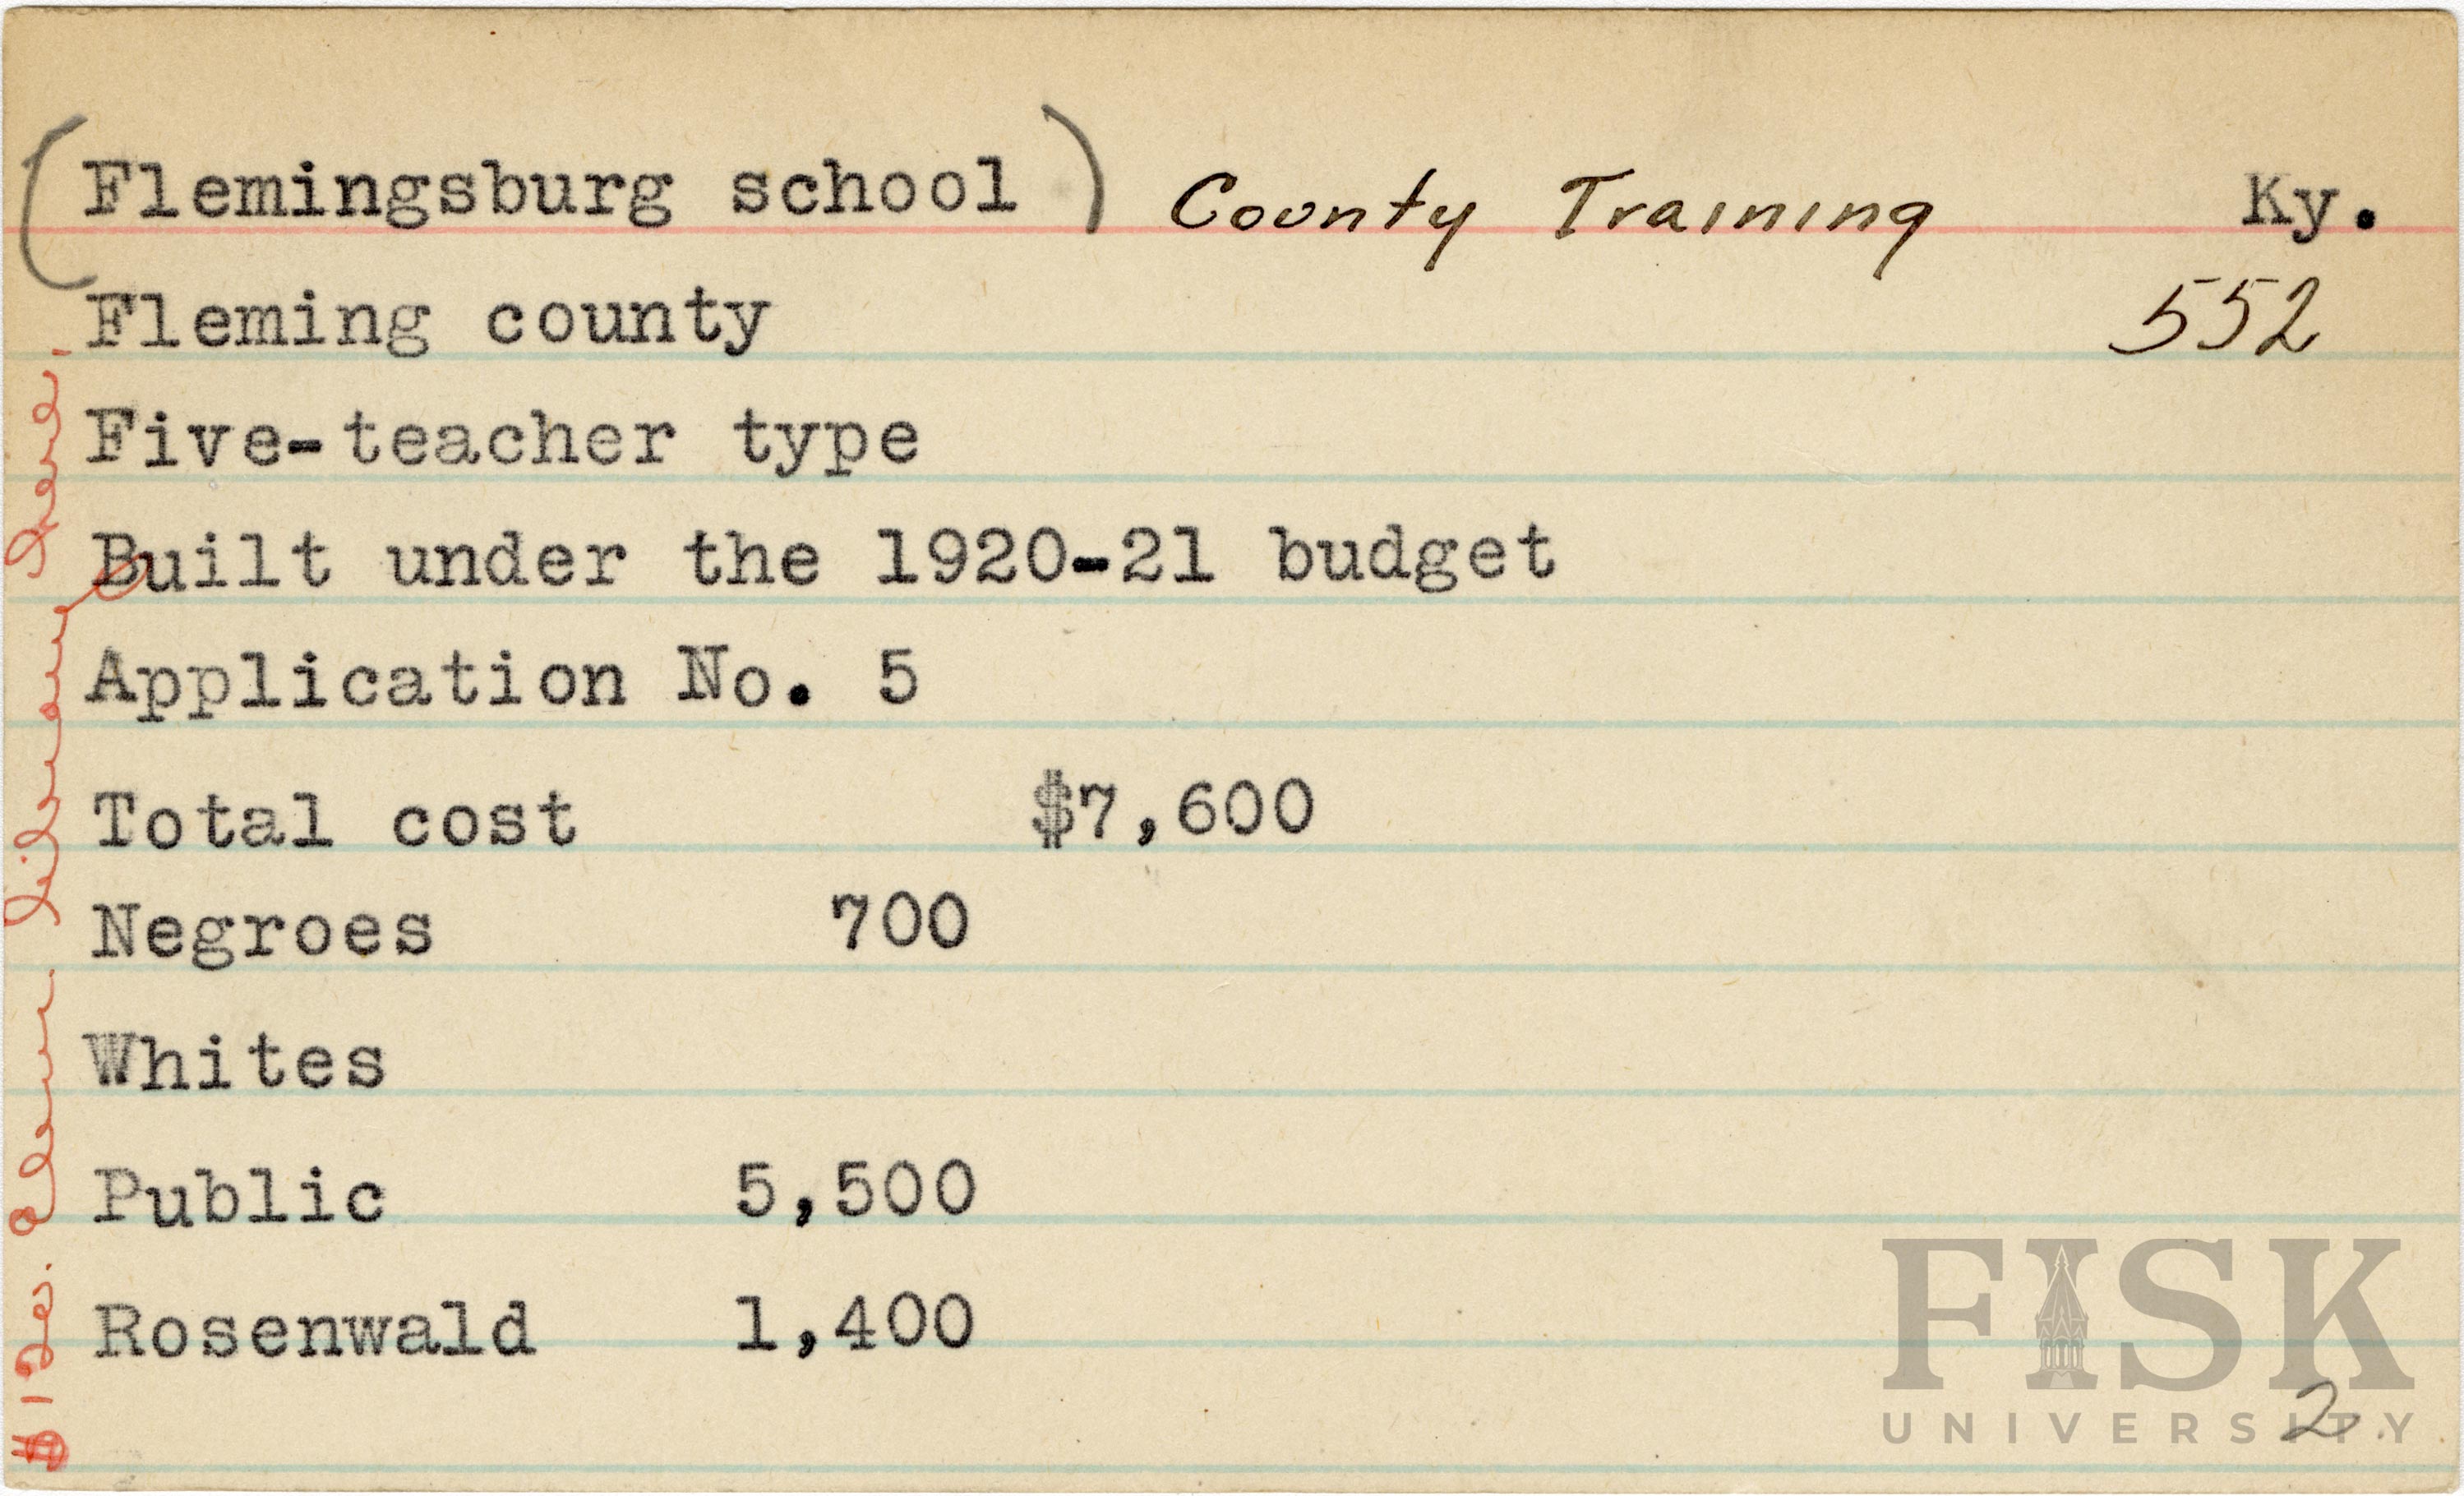 (Flemingsburg school) County Training Ky.
Fleming county 552
Five-teacher type
Built under the 1920-21 budget
Application No. 5
Total cost $7,600
Negroes 700
Whites
Public 5,500
Rosenwald 1,400
2
$120. Elem. library here.
FISK
UNIVERSITY